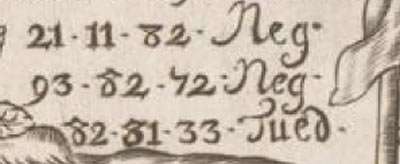 21·11·82·Neg·
93·82·72·Neg·
82·81·33·Tued·